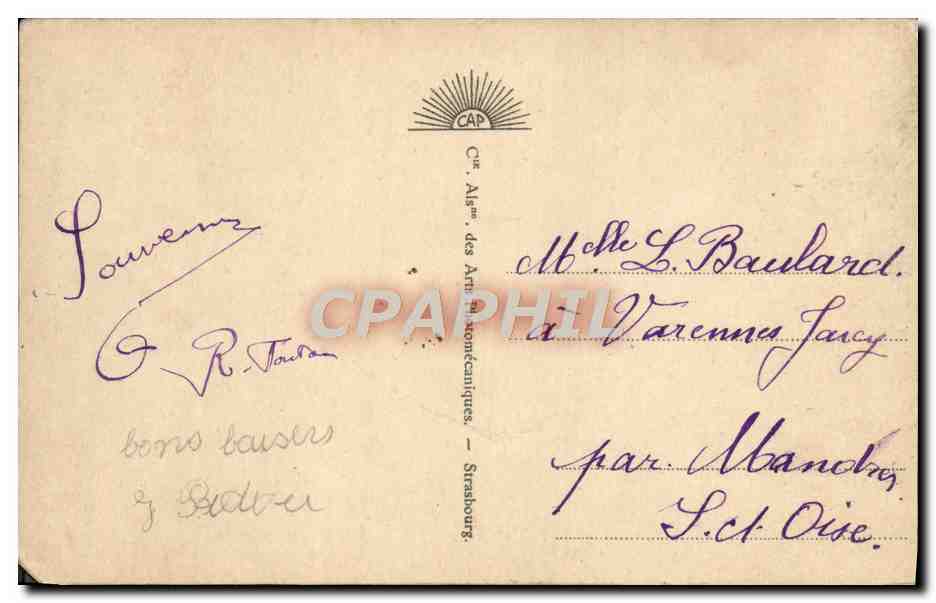 Souvenir
R.
bons baisers
CAP
Cie. Alsne. des Arts Photomécaniques. — Strasbourg.
CPAPHIL
Melle L. Baulard.
à Varennes Jarcy
par Mandres
S. et Oise.